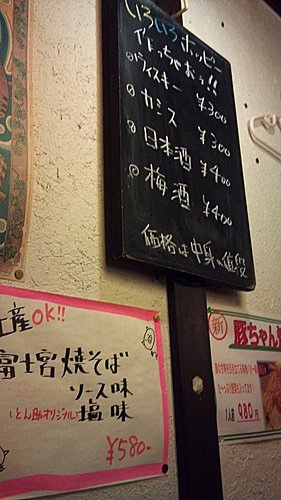 いろいろホッピー
作っちゃおう!!
ウィスキー ¥300
カシス ¥300
日本酒 ¥400
梅酒 ¥400
価格は中身の値段
土産OK!!
富士宮焼そば
ソース味
(とん豚オリジナル) 塩味
¥580-
新 豚ちゃん
1人前 980円